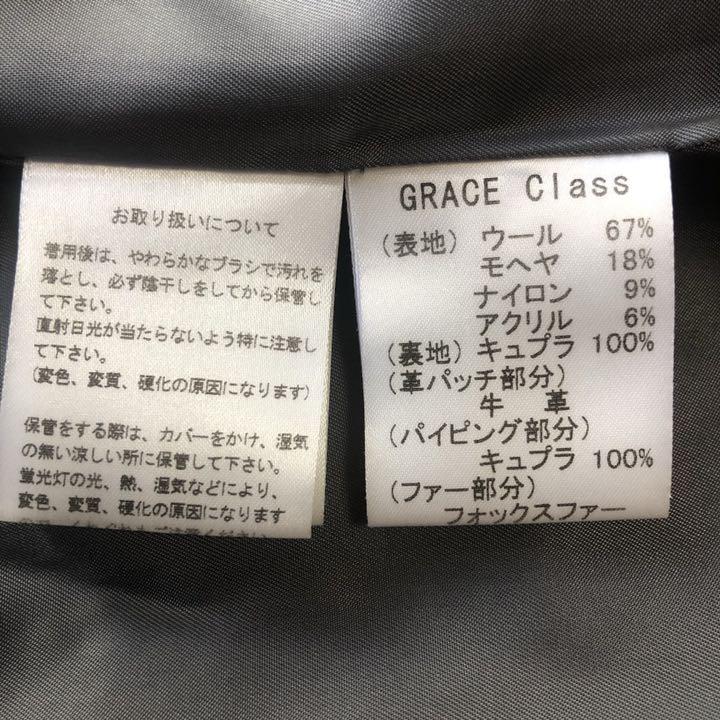 お取り扱いについて
着用後は、やわらかなブラシで汚れを
落とし、必ず陰干しをしてから保管し
て下さい。
直射日光が当たらないよう特に注意し
て下さい。
(変色、変質、硬化の原因になります)
保管をする際は、カバーをかけ、湿気
の無い涼しい所に保管して下さい。
蛍光灯の光、熱、湿気などにより、
変色、変質、硬化の原因になります
GRACE Class
(表地) ウール 67%
モヘヤ 18%
ナイロン 9%
アクリル 6%
(裏地) キュプラ 100%
(革パッチ部分)
牛 革
(パイピング部分)
キュプラ 100%
(ファー部分)
フォックスファー